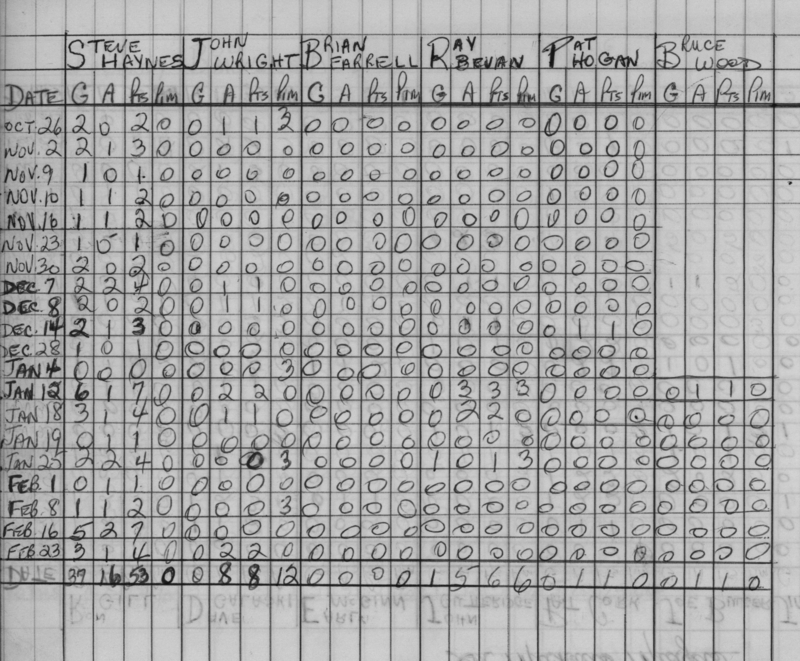 STEVE HAYNES JOHN WRIGHT BRIAN FARRELL RAY BEVAN PAT HOGAN BRUCE WOOD
DATE G A Pts Pim G A Pts Pim G A Pts Pim G A Pts Pim G A Pts Pim G A Pts Pim
OCT. 26 2 0 2 0 0 1 1 3 0 0 0 0 0 0 0 0 0 0 0 0
NOV. 2 2 1 3 0 0 0 0 0 0 0 0 0 0 0 0 0 0 0 0 0
NOV. 9 1 0 1 0 0 0 0 0 0 0 0 0 0 0 0 0 0 0 0 0
NOV. 10 1 1 2 0 0 0 0 0 0 0 0 0 0 0 0 0 0 0 0 0
NOV. 16 1 1 2 0 0 0 0 0 0 0 0 0 0 0 0 0 0 0 0 0
NOV. 23 1 0 1 0 0 0 0 0 0 0 0 0 0 0 0 0 0 0 0 0
NOV. 30 2 0 2 0 0 0 0 0 0 0 0 0 0 0 0 0 0 0 0 0
DEC. 7 2 2 4 0 0 1 1 0 0 0 0 0 0 0 0 0 0 0 0 0
DEC. 8 2 0 2 0 0 1 1 0 0 0 0 0 0 0 0 0 0 0 0 0
DEC. 14 2 1 3 0 0 0 0 0 0 0 0 0 0 0 0 0 0 1 1 0
DEC. 28 1 0 1 0 0 0 0 0 0 0 0 0 0 0 0 0 0 0 0 0
JAN 4 0 0 0 0 0 0 0 3 0 0 0 0 0 0 0 0 0 0 0 0
JAN 12 6 1 7 0 0 2 2 0 0 0 0 0 0 3 3 3 0 0 0 0 0 1 1 0
JAN 18 3 1 4 0 0 1 1 0 0 0 0 0 0 2 2 0 0 0 0 0 0 0 0 0
JAN 19 0 1 1 0 0 0 0 0 0 0 0 0 0 0 0 0 0 0 0 0 0 0 0 0
JAN 25 2 2 4 0 0 0 0 3 0 0 0 0 1 0 1 3 0 0 0 0 0 0 0 0
FEB. 1 0 1 1 0 0 0 0 0 0 0 0 0 0 0 0 0 0 0 0 0 0 0 0 0
FEB. 8 1 1 2 0 0 0 0 3 0 0 0 0 0 0 0 0 0 0 0 0 0 0 0 0
FEB. 16 5 2 7 0 0 0 0 0 0 0 0 0 0 0 0 0 0 0 0 0 0 0 0 0
FEB 23 3 1 4 0 0 2 2 0 0 0 0 0 0 0 0 0 0 0 0 0 0 0 0 0
DATE 37 16 53 0 0 8 8 12 0 0 0 0 1 5 6 6 0 1 1 0 0 1 1 0